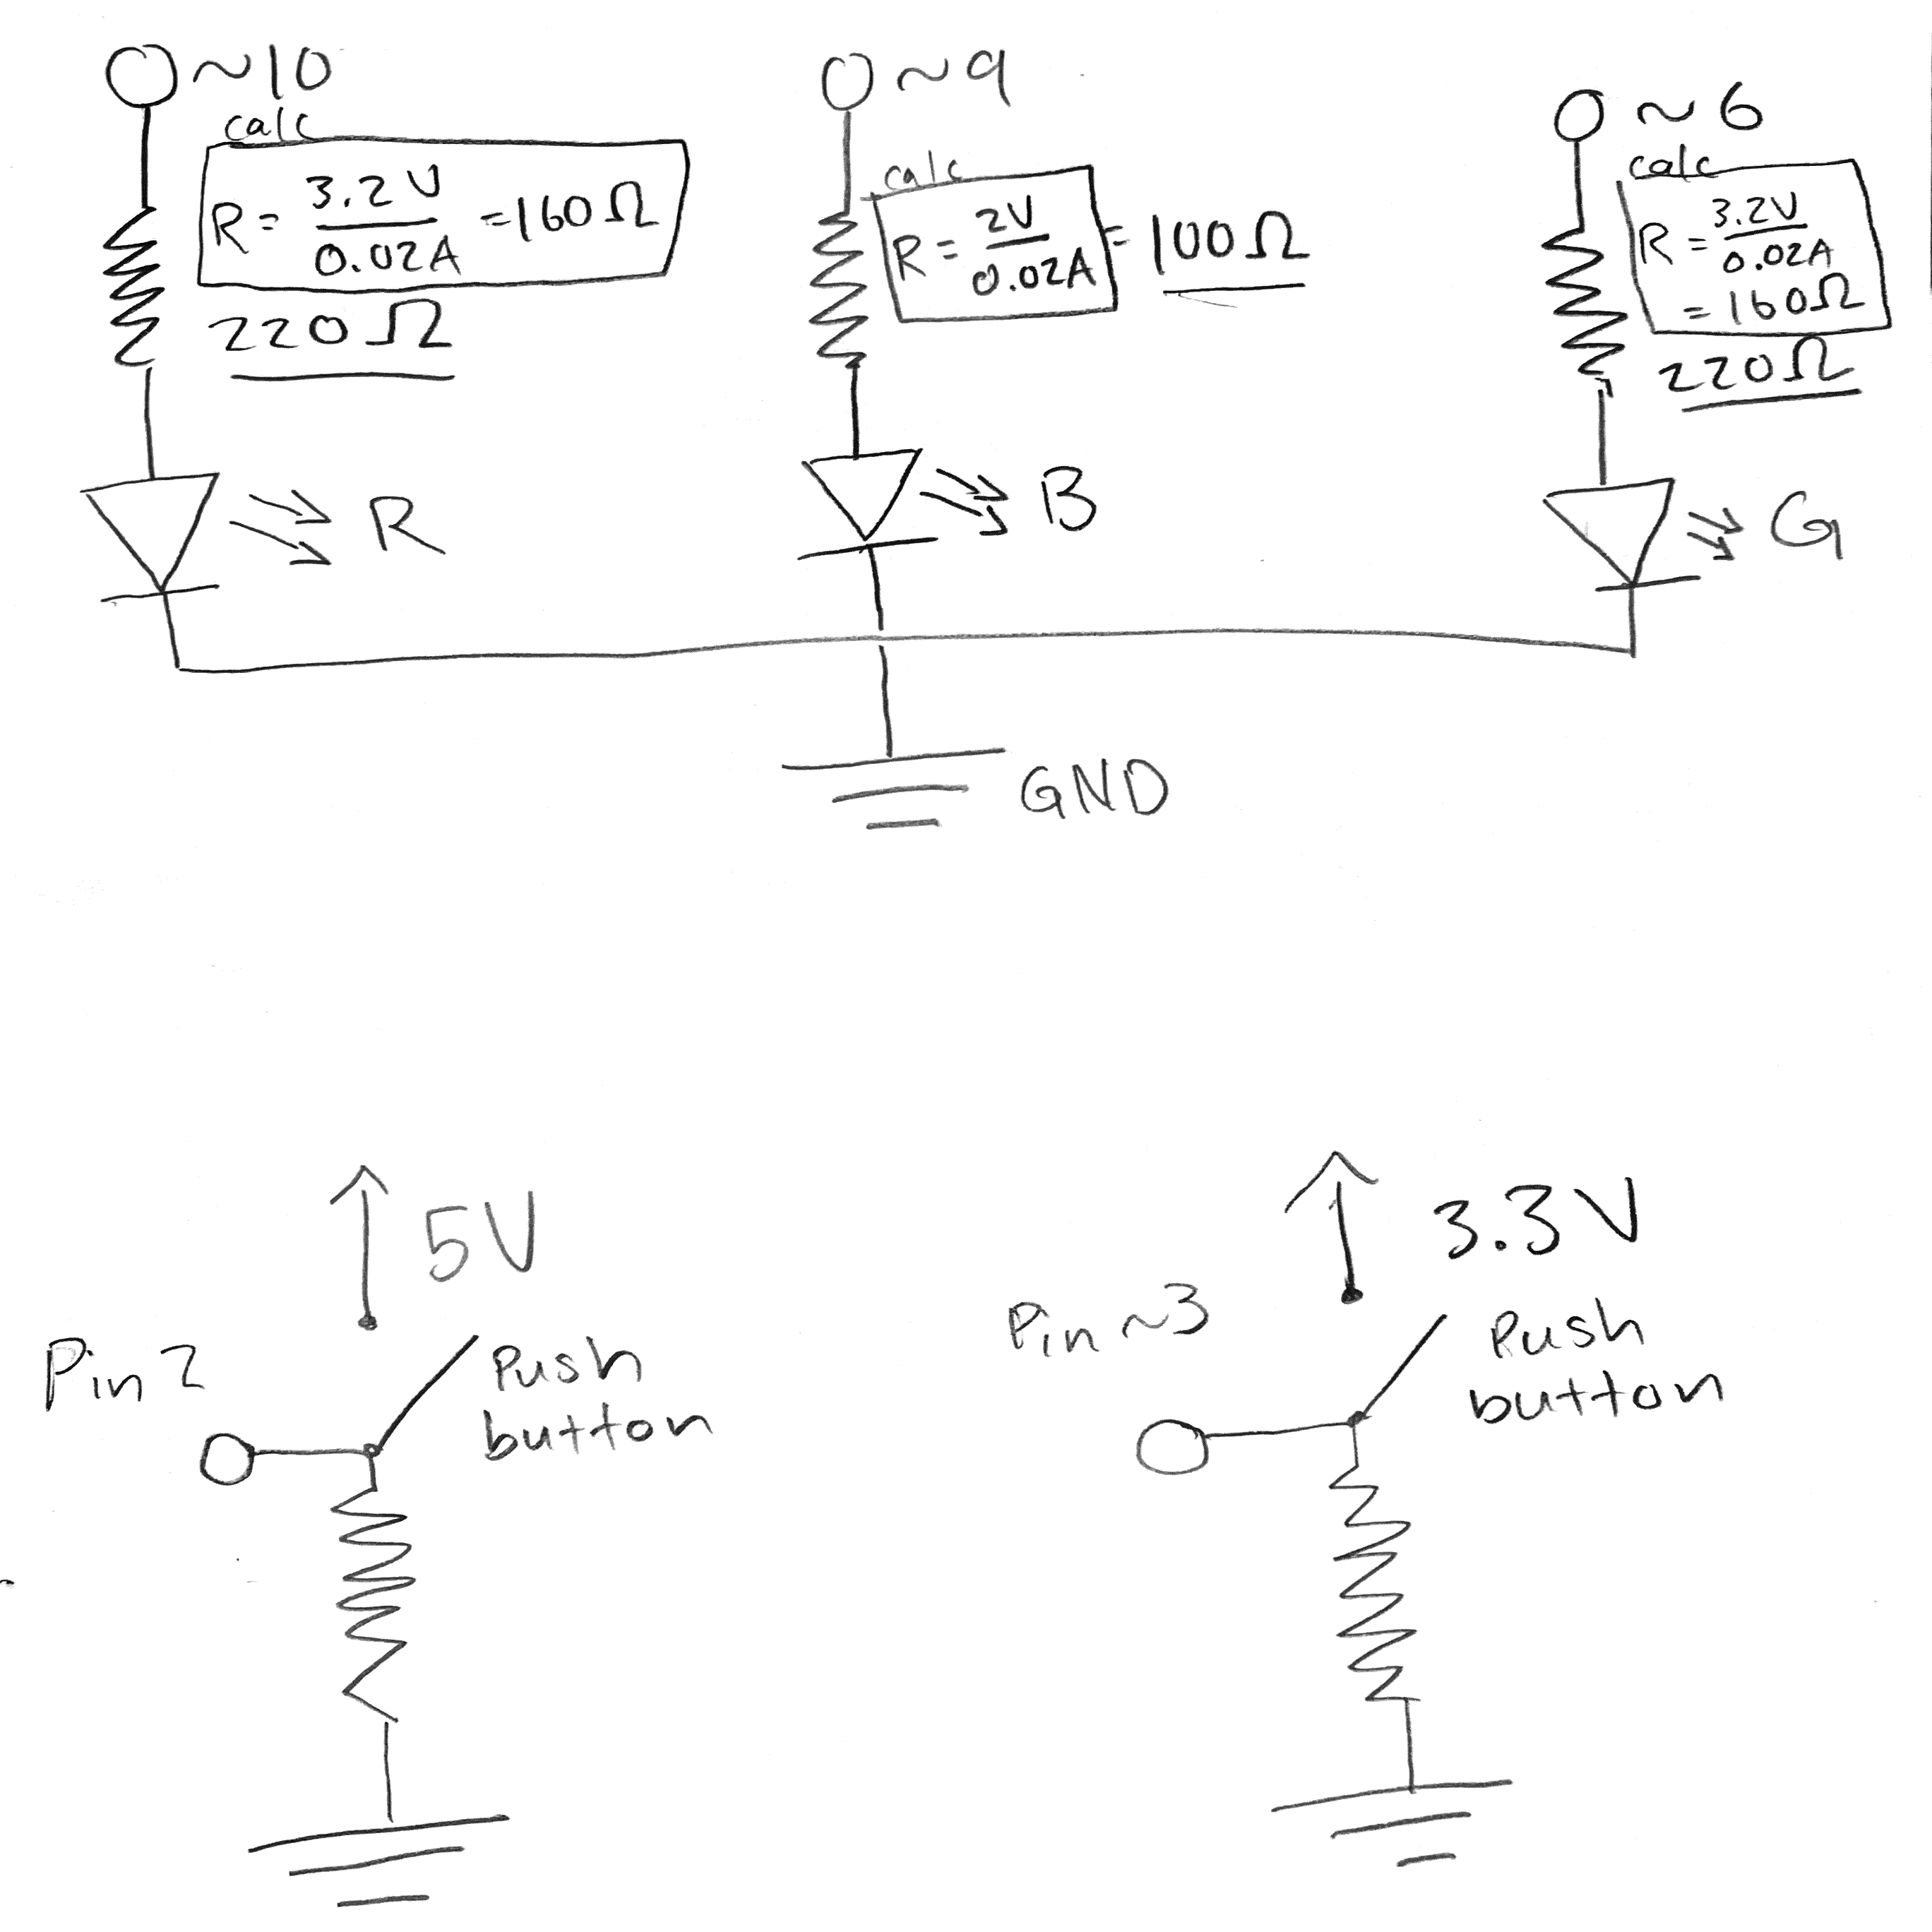 ~10
calc
R = 3.2V / 0.02A = 160Ω
220Ω
R
~9
calc
R = 2V / 0.02A = 100Ω
B
~6
calc
R = 3.2V / 0.02A
= 160Ω
220Ω
G
GND
5V
Pin 2
Push
button
3.3V
Pin ~3
Push
button